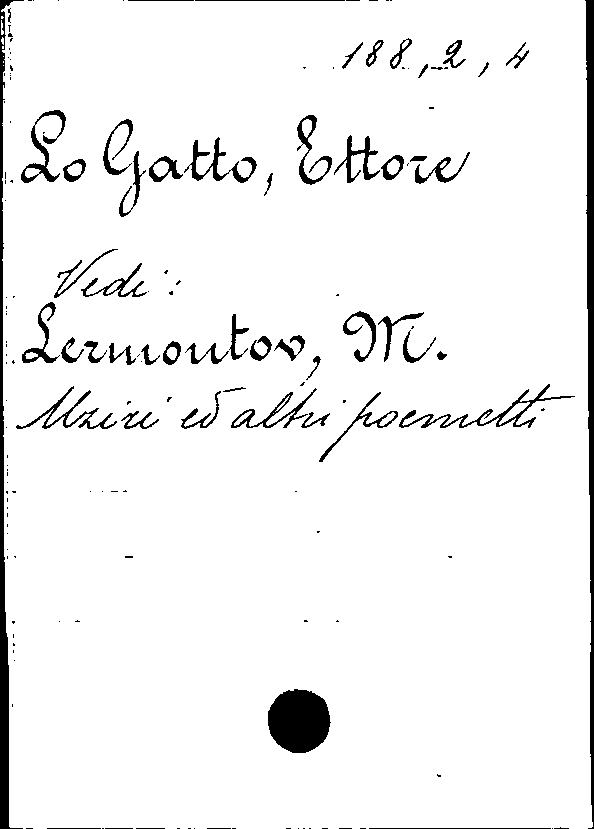 188, 2, 4
Lo Gatto, Ettore
Vedi:
Lermontov, M.
Mziri ed altri poemetti